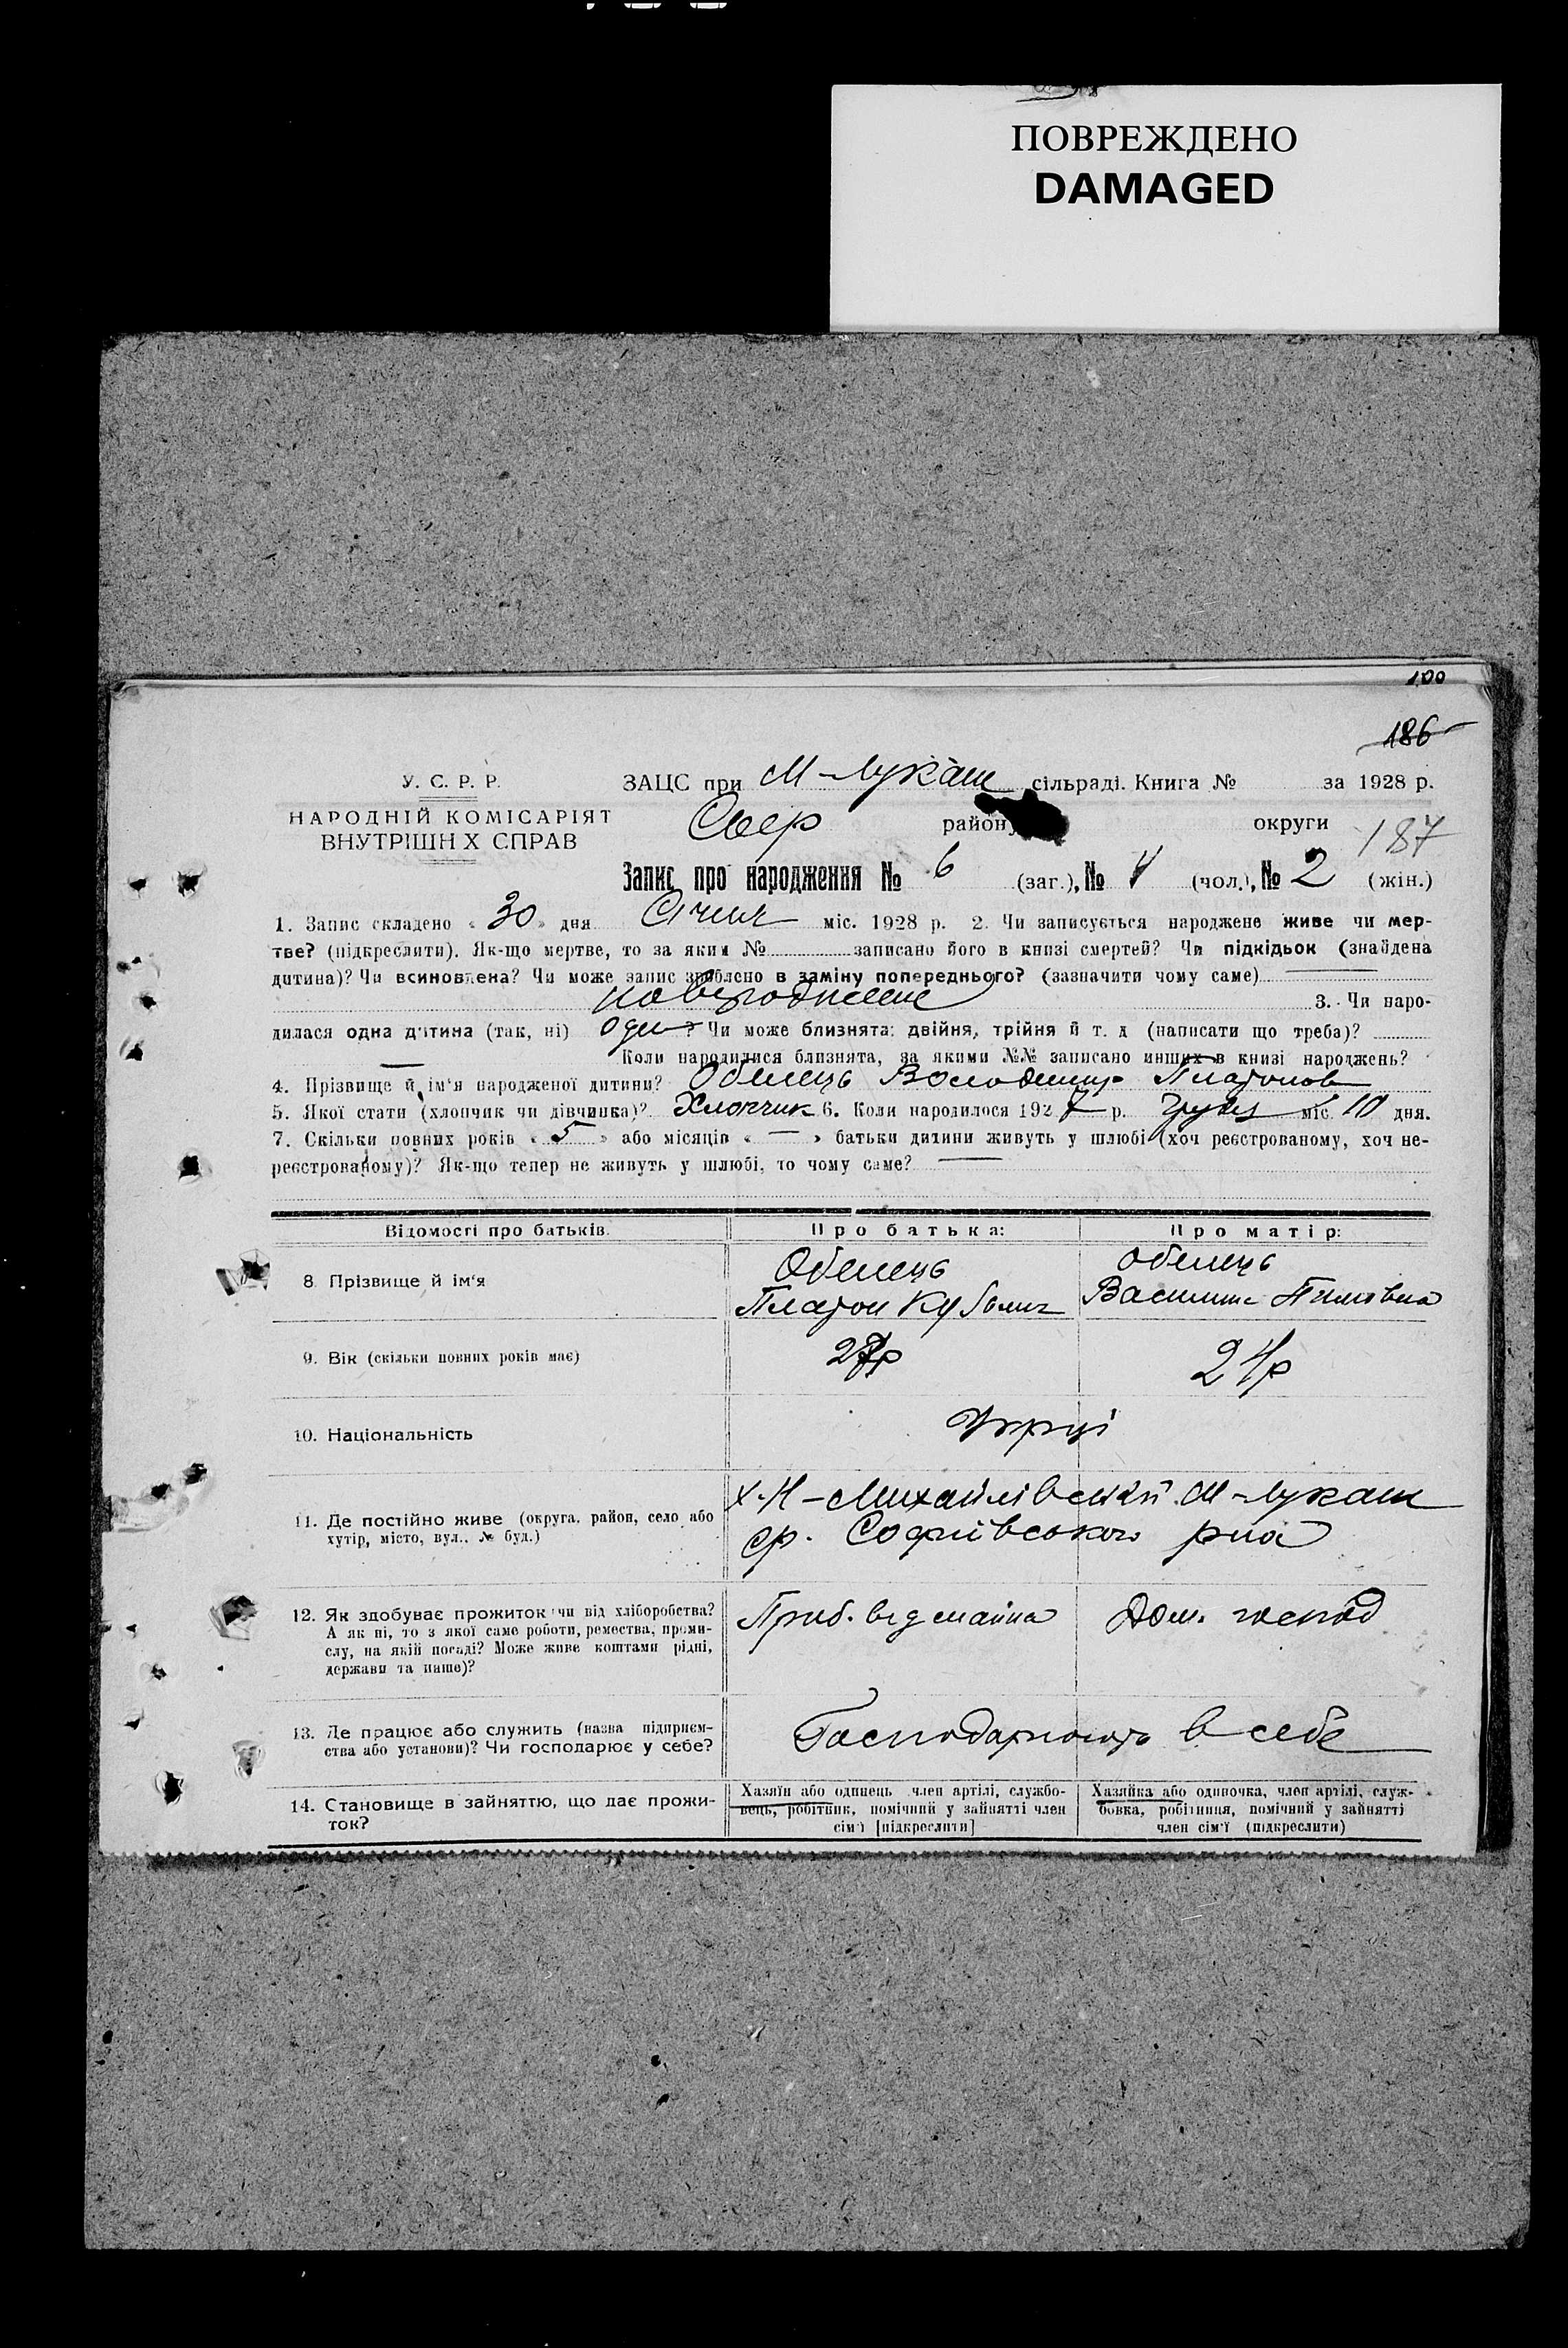 ПОВРЕЖДЕНО
DAMAGED
100
186
У. С. Р. Р.
НАРОДНІЙ КОМІСАРІЯТ
ВНУТРІШН Х СПРАВ
ЗАЦС при М-Лукаш сільраді. Книга № за 1928 р.
району округи 187
Запис про народження № 6 (заг.), № 4 (чол.), № 2 (жін.)
1. Запис складено « 30 » дня Січня міс. 1928 р. 2. Чи записується народжене живе чи мер-
тве? (підкреслити). Як-що мертве, то за яким № записано його в книзі смертей? Чи підкідьок (знайдена
дитина)? Чи всиновлена? Чи може запис зроблено в заміну попереднього? (зазначити чому саме)
3. Чи наро-
дилася одна дитина (так, ні) ? Чи може близнята: двійня, трійня й т. д (написати що треба)?
Коли народилися близнята, за якими №№ записано инших в книзі народжень?
4. Прізвище й ім'я народженої дитини? Обелець Володимир Платонов
5. Якої стати (хлопчик чи дівчинка)? Хлопчик 6. Коли народилося 1927 р. Грудня міс. 10 дня.
7. Скільки повних років « 5 » або місяців « — » батьки дитини живуть у шлюбі (хоч реєстрованому, хоч не-
реєстрованому)? Як-що тепер не живуть у шлюбі, то чому саме? —
Відомості про батьків. Про батька: Про матір:
Обелець Обелець
8. Прізвище й ім'я
Платон
9. Вік (скільки повних років має) 24р
10. Національність Укрці
Х.Н-Михайлівський М-Лукаш
11. Де постійно живе (округа, район, село або
хутір, місто, вул., № буд.)
ср. Софіївського рна
12. Як здобуває прожиток чи від хліборобства? Приб. від майна Дом. господ
А як ні, то з якої саме роботи, ремества, проми-
слу, на якій посаді? Може живе коштами рідні,
держави та инше)?
13. Де працює або служить (назва підприєм- Господарюють в себе
ства або установи)? Чи господарює у себе?
14. Становище в зайняттю, що дає прожи-
ток?
Хазяїн або одинець член артілі, службо-
вець, робітник, помічний у зайнятті член
сім'ї [підкреслити]
Хазяйка або одиночка, член артілі, служ-
бовка, робітниця, помічний у зайнятті
член сім'ї (підкреслити)